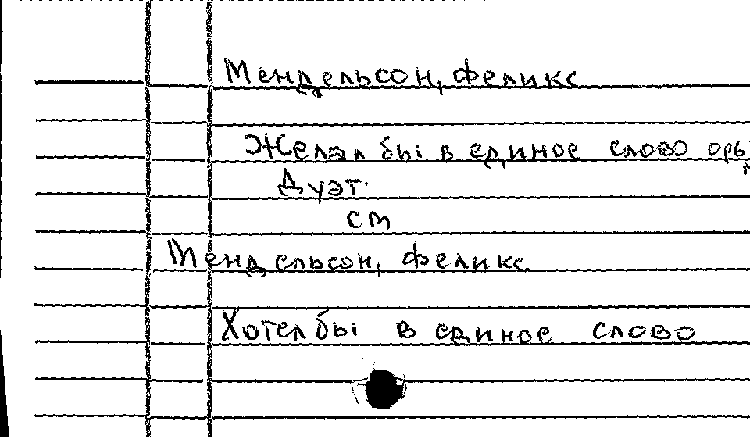 Мендельсон, Феликс
Желал бы в единое слово
Дуэт.
см
Мендельсон, Феликс
Хотел бы в единое слово